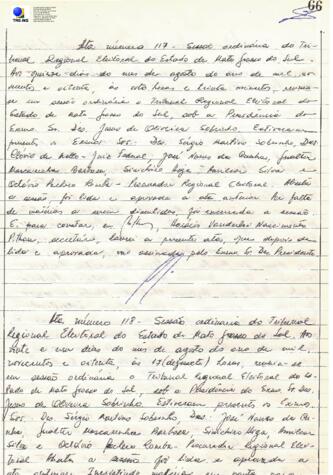 TRE/MS
66
Ata número 117 - Sessão ordinária do Tri-
bunal Regional Eleitoral do Estado de Mato Grosso do Sul.
Aos quinze dias do mês de agosto do ano de mil, no-
vecentos e oitenta, às oito horas e trinta minutos, reuniu-
se em sessão ordinária o Tribunal Regional Eleitoral do
Estado de Mato Grosso do Sul, sob a Presidência do
Exmo. Sr. Des. Jesus de Oliveira Sobrinho. Estiveram
presentes os Exmos. Srs. Des. Sérgio Martins Sobrinho, Drs.
de Mello - Juiz Federal, José Nunes da Cunha, Gualter
Mascarenhas Barbosa, Higa, Silva e
Octávio Pacheco - Procurador Regional Eleitoral. Aberta
a sessão, foi lida e aprovada a ata anterior. Por falta
de matérias a serem discutidas, foi encerrada a sessão.
E, para constar, eu, Nascimento
secretário, lavrei a presente ata, que depois de
lida e aprovada, vai assinada pelo Exmo. Sr. Des. Presidente.
Ata número 118 - Sessão ordinária do Tribunal
Regional Eleitoral do Estado de Mato Grosso do Sul. Aos
vinte e um dias do mês de agosto do ano de mil,
novecentos e oitenta, às 17 (dezessete) horas, reuniu-se
em sessão ordinária o Tribunal Regional Eleitoral do Es-
tado de Mato Grosso do Sul, sob a Presidência do Exmo. Sr. Des.
Jesus de Oliveira Sobrinho. Estiveram presentes os Exmos.
Srs. Des. Sérgio Martins Sobrinho, Drs. José Nunes da Cu-
nha, Gualter Mascarenhas Barbosa, Higa,
Silva e Octávio Pacheco - Procurador Regional Elei-
toral. Aberta a sessão, foi lida e aprovada a
ata anterior.